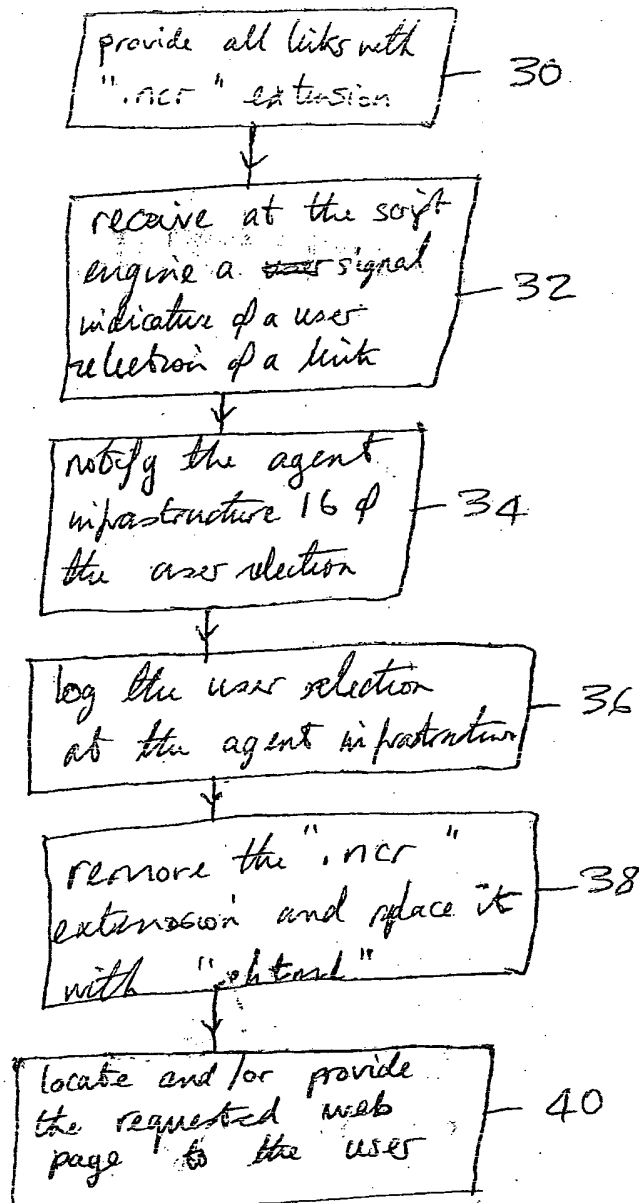 provide all links with
".ncr" extension
30
receive at the script
engine a user signal
indicative of a user
selection of a link
32
notify the agent
infrastructure 16 of
the user selection
34
log the user selection
at the agent infrastructure
36
remove the ".ncr"
extension and replace it
with ".html"
38
locate and/or provide
the requested web
page to the user
40